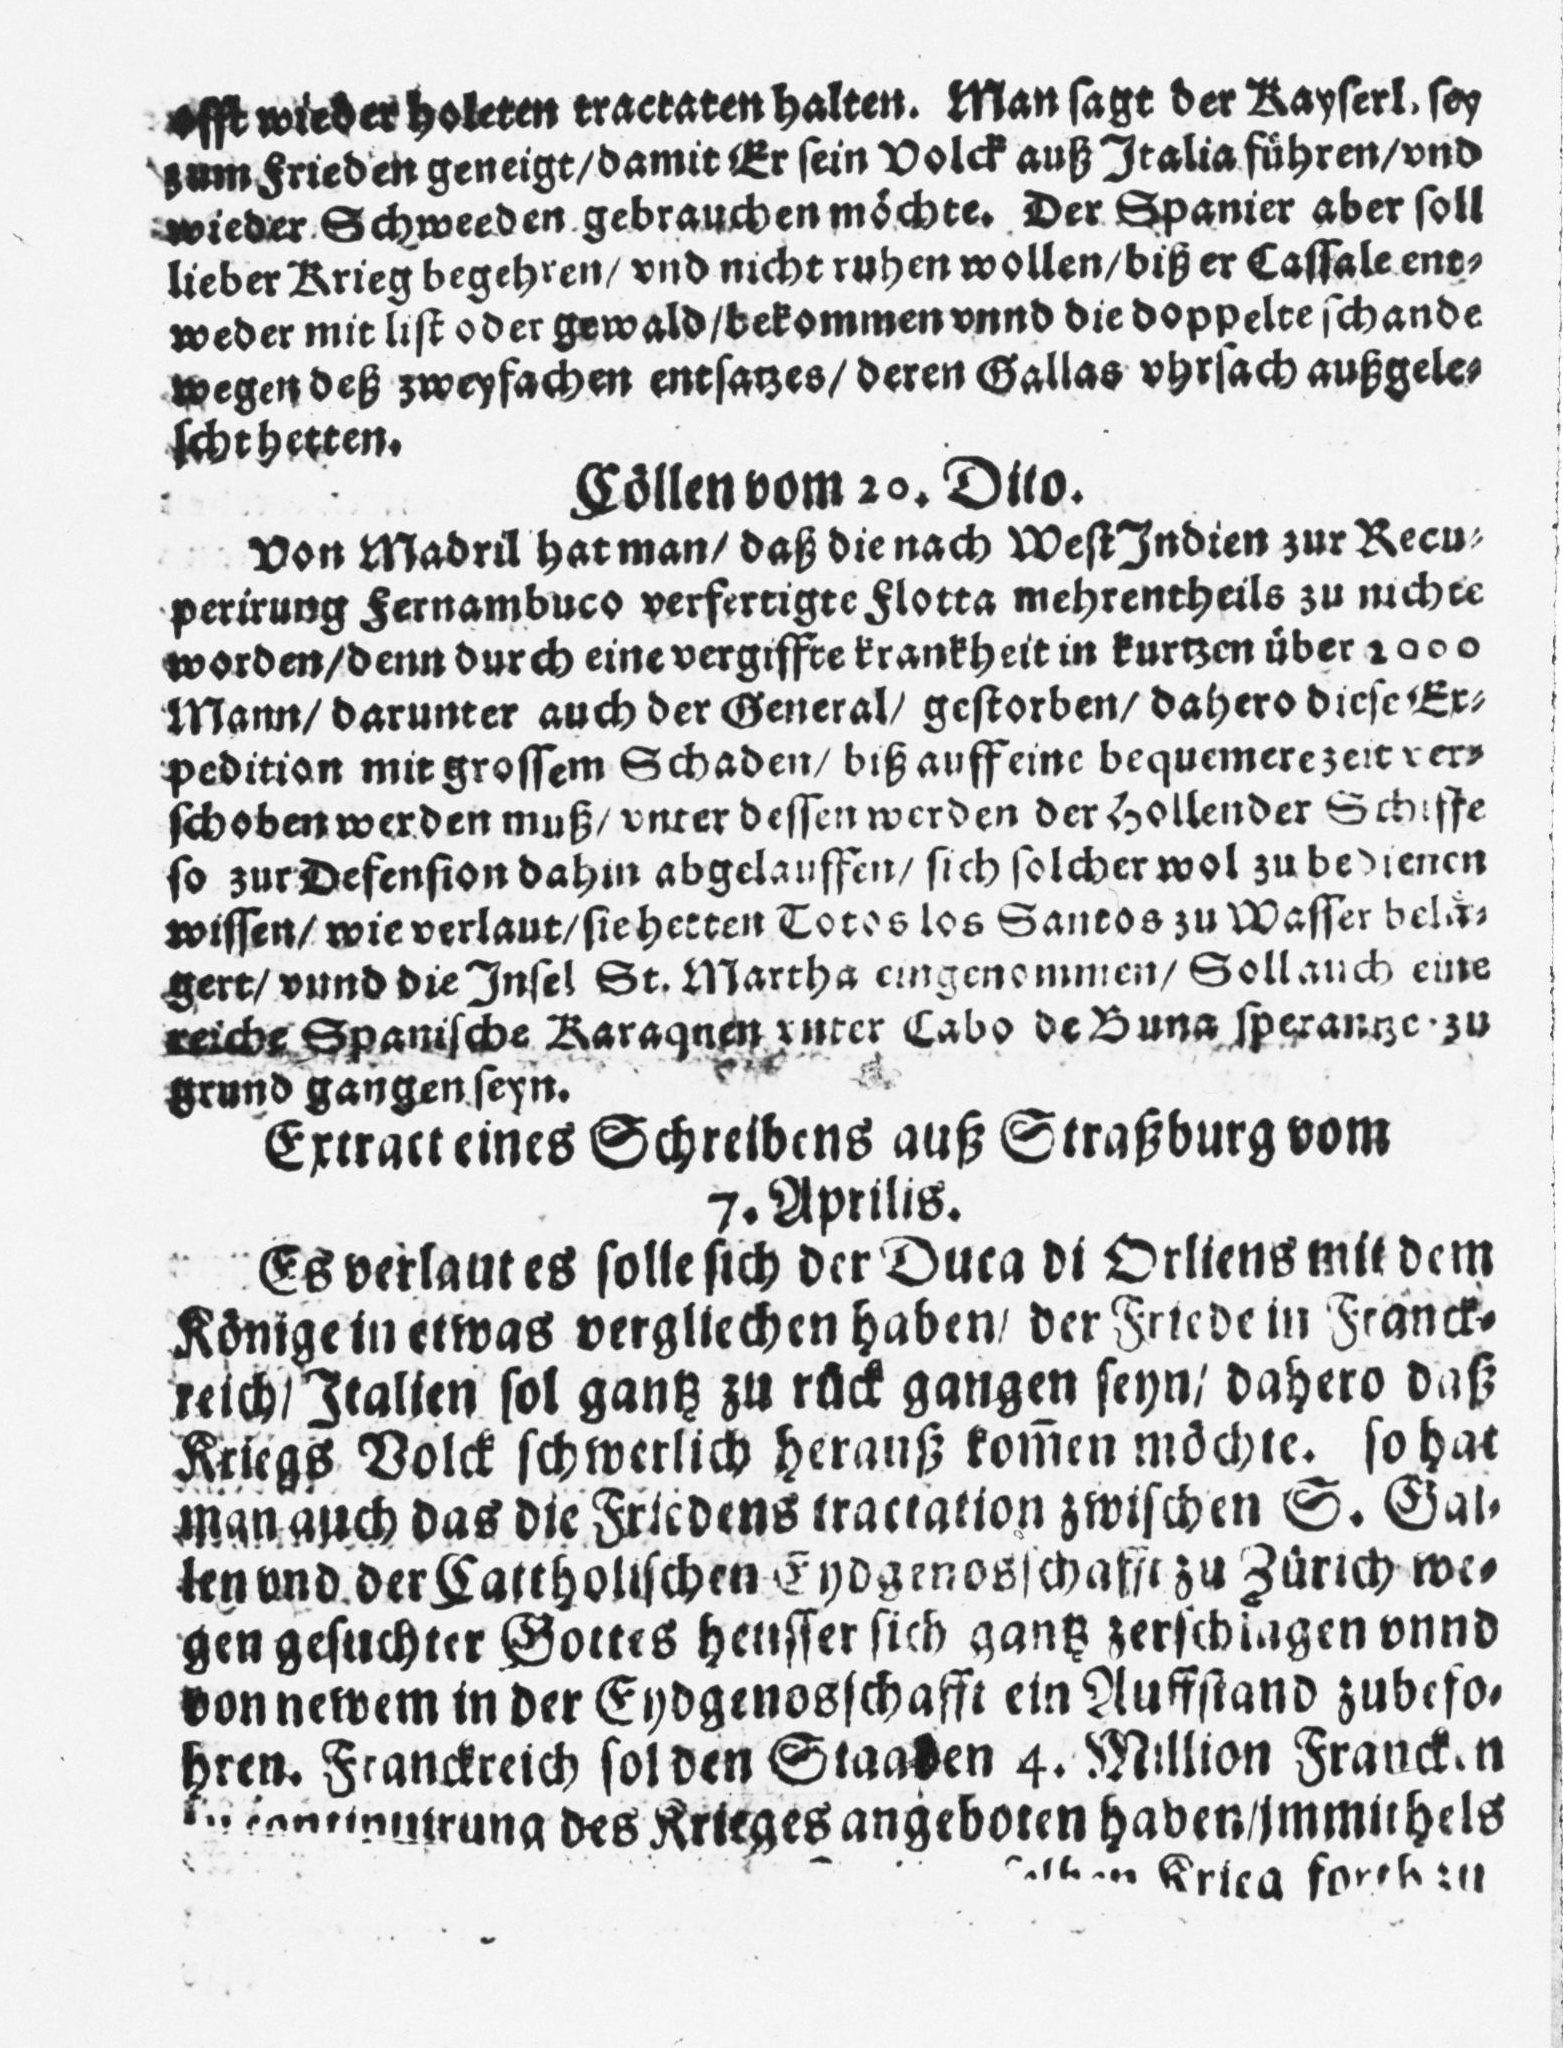 offt wieder holeten tractaten halten. Man sagt der Kayserl. sey
zum Frieden geneigt/damit Er sein Volck auß Italia führen/vnd
wieder Schweeden gebrauchen möchte. Der Spanier aber soll
lieber Krieg begehren/ vnd nicht ruhen wollen/biß er Cassale ent-
weder mit list oder gewald/bekommen vnnd die doppelte schande
wegen deß zweyfachen entsatzes/ deren Gallas vhrsach außgele-
scht hetten.
Cöllen vom 20. Dito.
Von Madril hat man/ daß die nach West Indien zur Recu-
perirung Fernambuco verfertigte Flotta mehrentheils zu nichte
worden/denn durch eine vergiffte krankheit in kurtzen über 2000
Mann/ darunter auch der General/ gestorben/ dahero diese Ex-
pedition mit grossem Schaden/ biß auff eine bequemere zeit ver-
schoben werden muß/ vnter dessen werden der Hollender Schiffe
so zur Defension dahin abgelauffen/ sich solcher wol zu bedienen
wissen/ wie verlaut/sie hetten Totos los Santos zu Wasser belä-
gert/ vnnd die Insel St. Martha eingenommen/ Soll auch eine
reiche Spanische Karaqnen vnter Cabo de Buna sperantze zu
grund gangen seyn.
Extract eines Schreibens auß Straßburg vom
7. Aprilis.
Es verlaut es solle sich der Duca di Orliens mit dem
Könige in etwas vergliechen haben/ der Friede in Franck-
reich/ Italien sol gantz zu rück gangen seyn/ dahero daß
Kriegs Volck schwerlich herauß kom̄en möchte. so hat
man auch das die Friedens tractation zwischen S. Gal-
len vnd der Cattholischen Eydgenosschafft zu Zürich we-
gen gesuchter Gottes heusser sich gantz zerschlagen vnnd
von newem in der Eydgenosschafft ein Auffstand zubefo-
hren. Franckreich sol den Staaden 4. Million Francken
continuirung des Krieges angeboten haben/immithels
Krieg forth zu